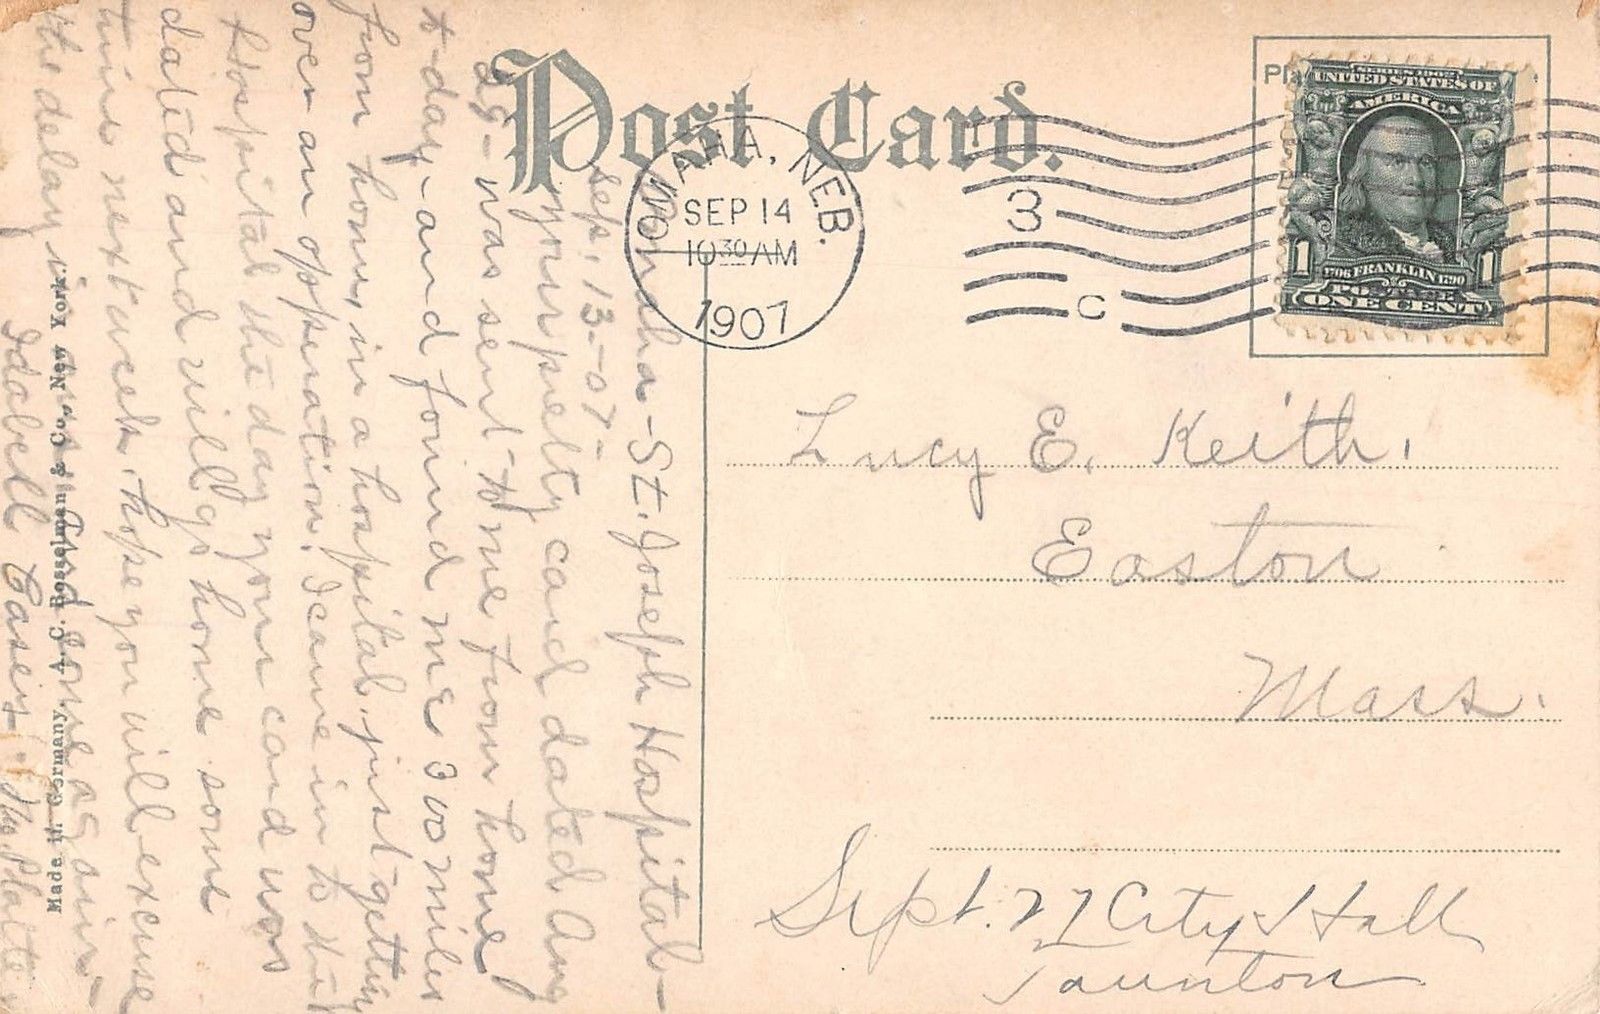 Post Card.
OMAHA, NEB.
SEP 14
10 30 AM
1907
3
C
SERIES 1902
UNITED STATES OF
AMERICA
1706 FRANKLIN 1790
1 1
POSTAGE
ONE CENT
Lucy E. Keith.
Easton
Mass.
Sept. 27 City Hall
Taunton
Omaha - St. Joseph Hospital -
Sep. 13 - 07 -
your pretty card dated Aug
29 - was sent to me from home
to-day - and found me 300 miles
from home, in a hospital, just getting
over an opperation. I came in to the
Hospital the day your card was
dated and will go home some
time next week. hope you will excuse
the delay in and come again
Idabell Casey.
Made in Germany. A. C. Bosselman & Co., New York.